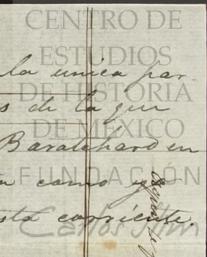 CENTRO DE
ESTUDIOS
DE HISTORIA
DE MÉXICO
FUNDACIÓN
Carlos Slim
la unica par
s de la que
Baratchard en
como
sta corriente.